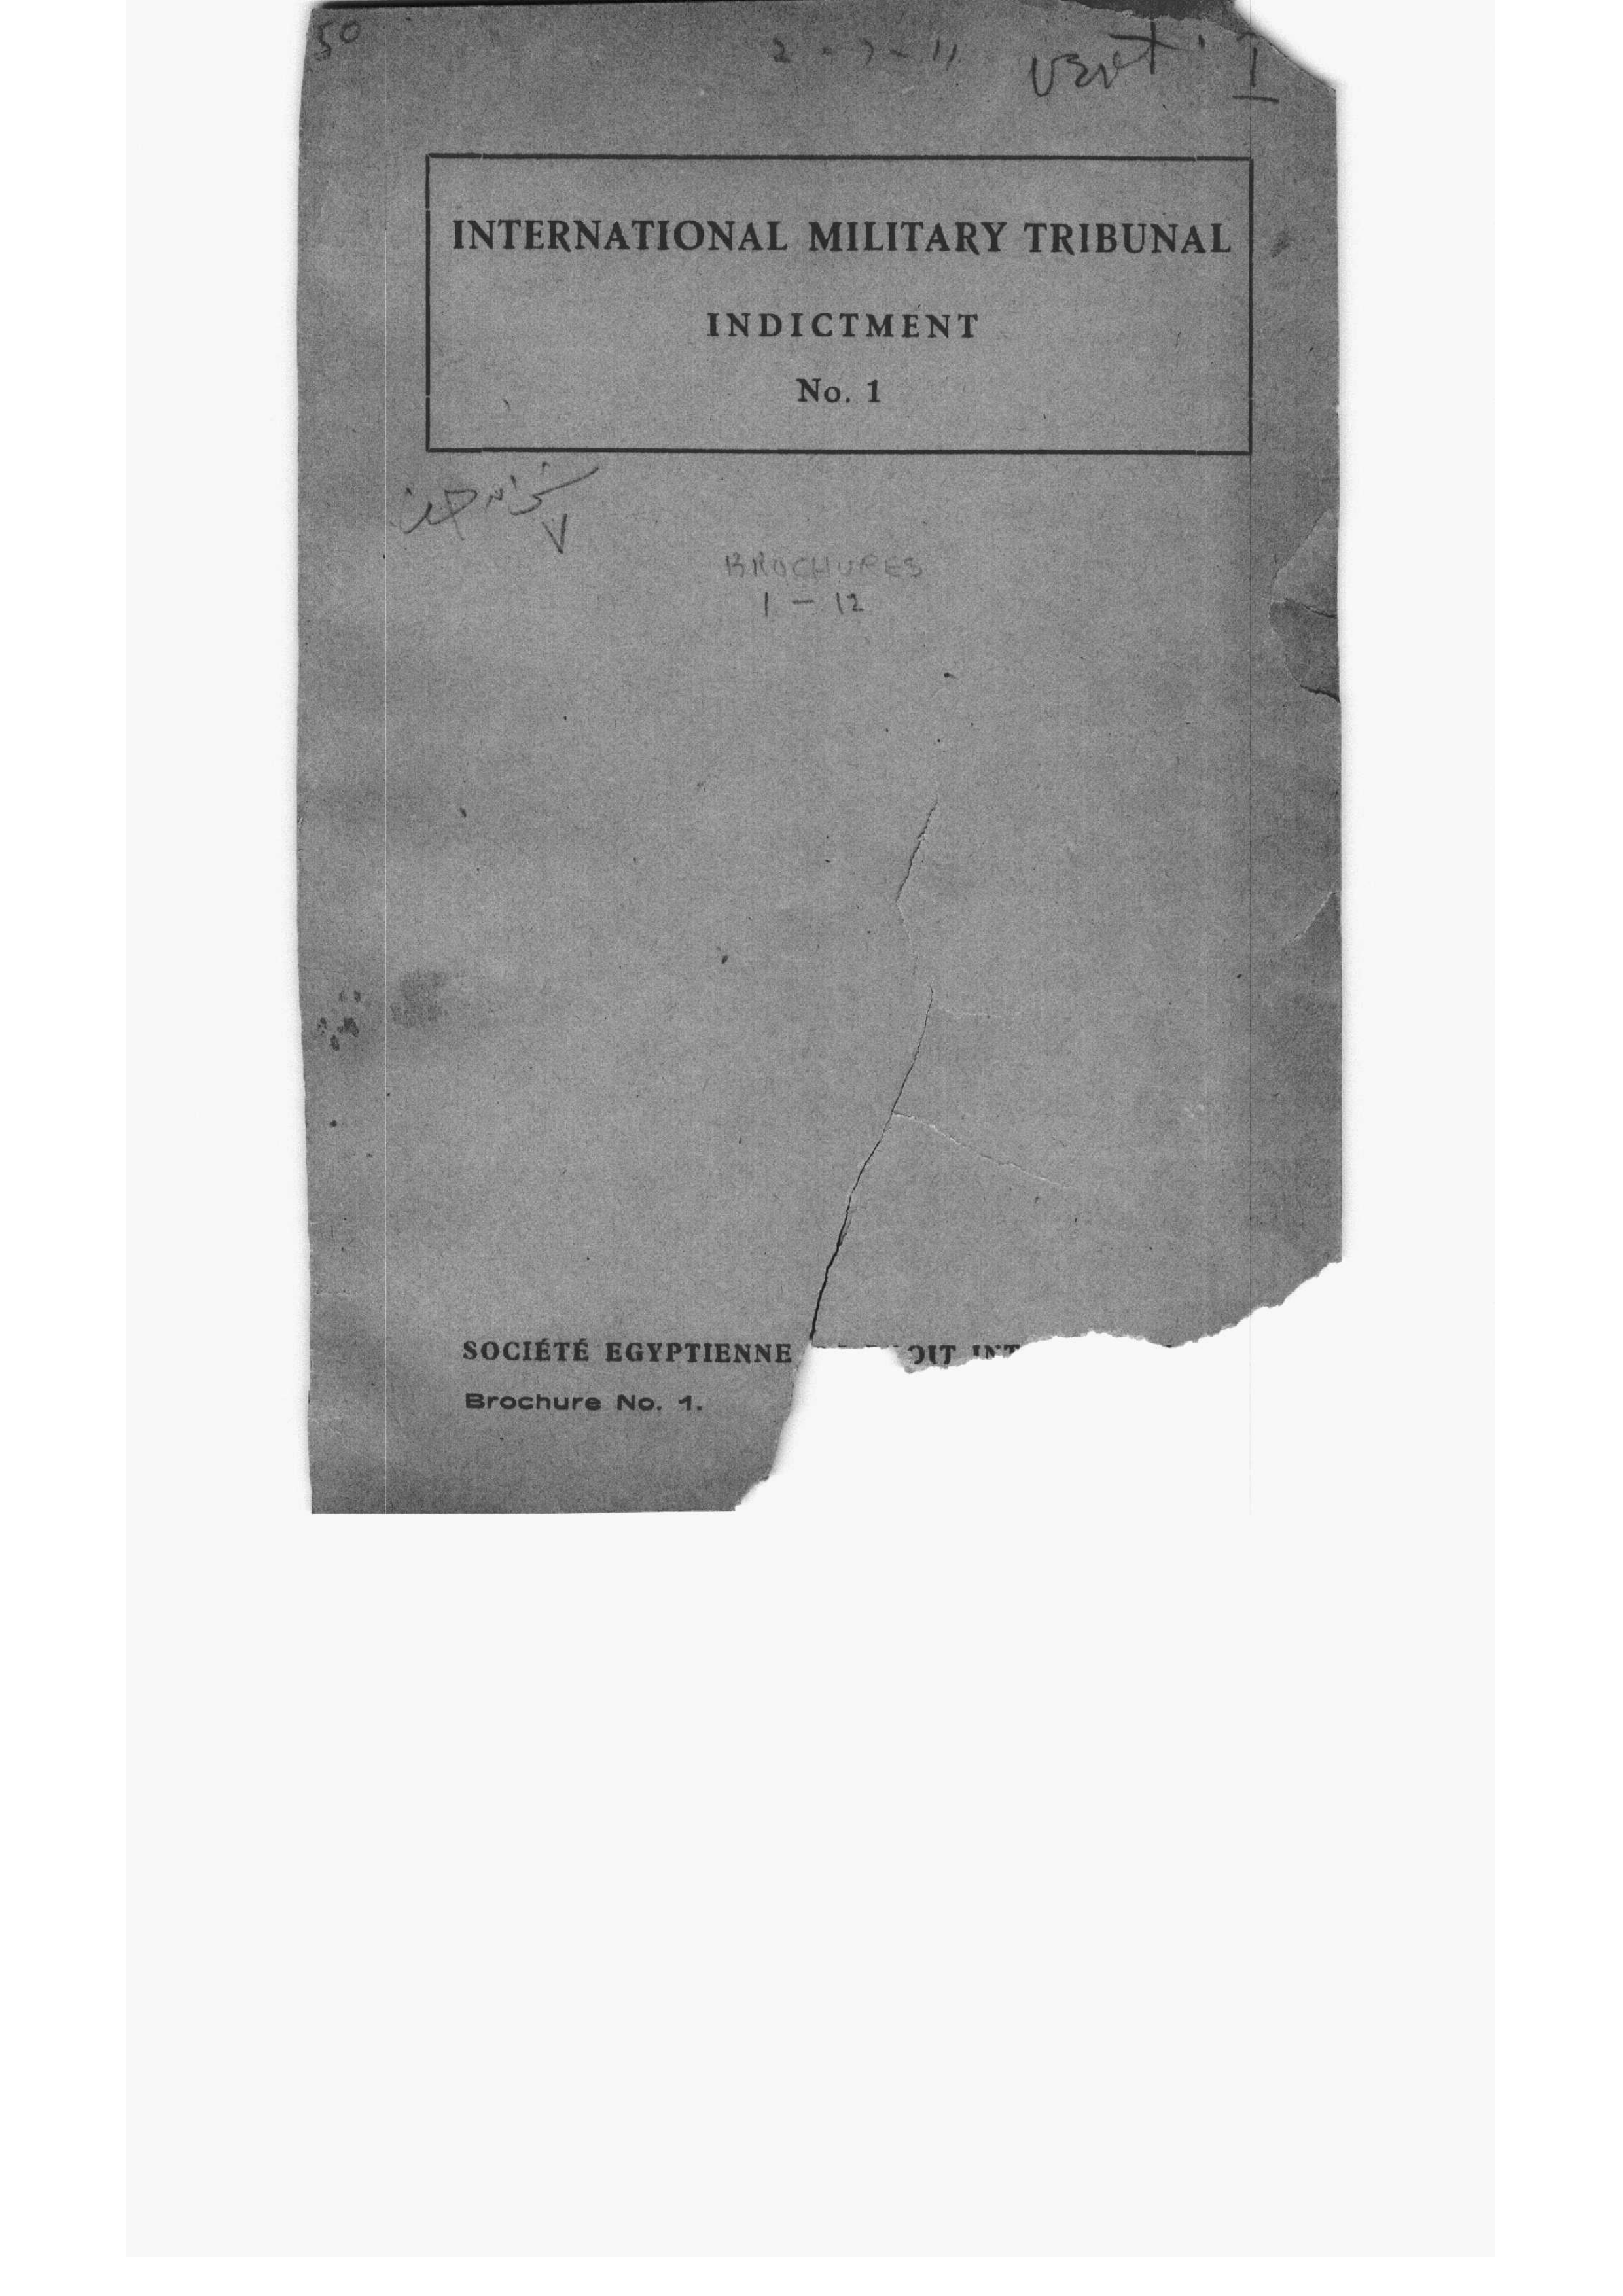 50
2 - 7 - 11
vert. I
INTERNATIONAL MILITARY TRIBUNAL
INDICTMENT
No. 1
BROCHURES
1 - 12
SOCIÉTÉ EGYPTIENNE OIT INT
Brochure No. 1.